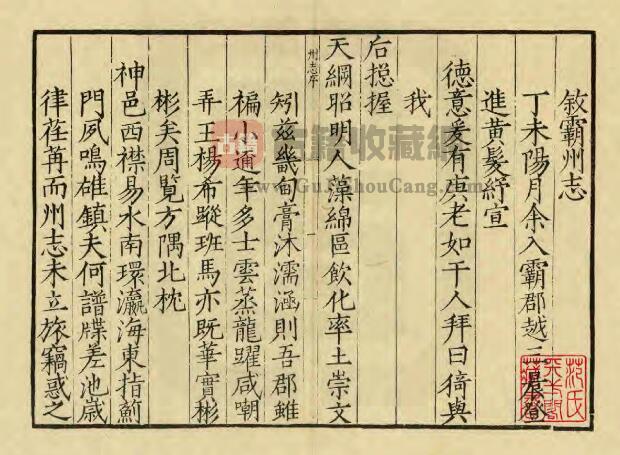 敘霸州志
丁未陽月余入霸郡越三晨登
進黃髮紓宣
德意爰有庚老如干人拜曰猗與
我
后揔握
天綱昭明人藻綿區飲化率土崇文
州志序
一
矧茲畿甸膏沐濡涵則吾郡雖
褊小邇年多士雲蒸龍躍咸嘲
弄王楊希蹤班馬亦既華實彬
彬矣周覽方隅北枕
神邑西襟易水南環瀛海東指薊
門夙鳴雄鎮夫何譜牒差池歲
律荏苒而州志未立旅竊惑之
古籍
古籍收藏網
www.GuJiShouCang.com